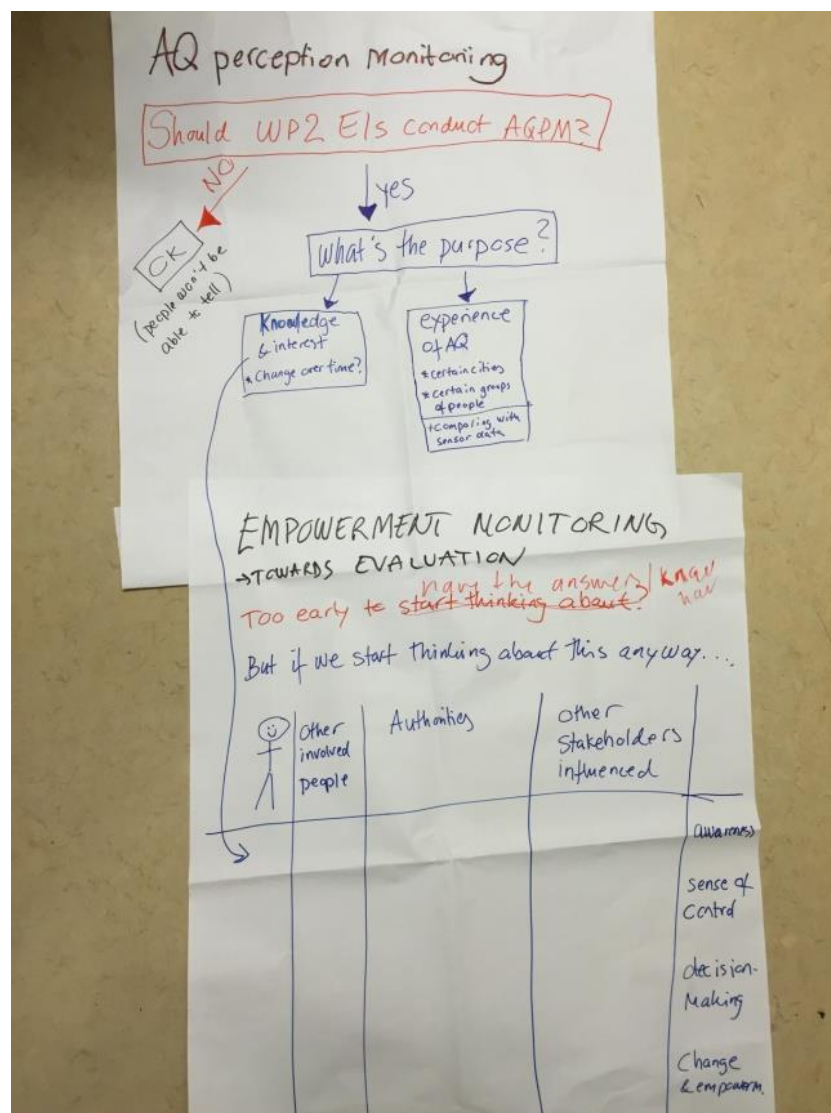 AQ perception Monitoring
Should WP2 EIs conduct AQPM?
NO
yes
OK
(people won't be
able to tell)
What's the purpose?
Knowledge
& interest
* Change over time?
experience
of AQ
* certain cities
* certain groups
of people
+ comparing with
sensor data
EMPOWERMENT MONITORING
→TOWARDS EVALUATION
have the answers/know
how
Too early to start thinking about.
But if we start thinking about this anyway....
Other
involved
people
Authorities
other
Stakeholders
influenced
awareness
sense of
Control
decision-
Making
Change
& empowerm.